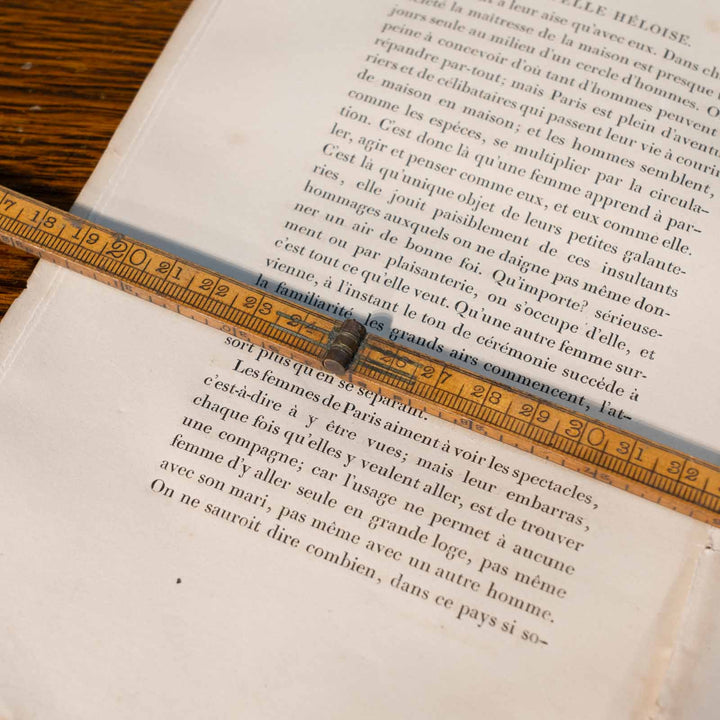 ELLE HÉLOISE.
à leur aise qu'avec eux. Dans
la maîtresse de la maison est presque
jours seule au milieu d'un cercle d'hommes. O
peine à concevoir d'où tant d'hommes peuvent
répandre par-tout; mais Paris est plein d'aventu
riers et de célibataires qui passent leur vie à courir
de maison en maison; et les hommes semblent,
comme les espèces, se multiplier par la circula-
tion. C'est donc là qu'une femme apprend à par-
ler, agir et penser comme eux, et eux comme elle.
C'est là qu'unique objet de leurs petites galante-
ries, elle jouit paisiblement de ces insultants
hommages auxquels on ne daigne pas même don-
ner un air de bonne foi. Qu'importe? sérieuse-
ment ou par plaisanterie, on s'occupe d'elle, et
c'est tout ce qu'elle veut. Qu'une autre femme sur-
vienne, à l'instant le ton de cérémonie succède à
la familiarité, les grands airs commencent, l'at-
sort plus qu'en se séparant.
Les femmes de Paris aiment à voir les spectacles,
c'est-à-dire à y être vues; mais leur embarras,
chaque fois qu'elles y veulent aller, est de trouver
une compagne; car l'usage ne permet à aucune
femme d'y aller seule en grande loge, pas même
avec son mari, pas même avec un autre homme.
On ne sauroit dire combien, dans ce pays si so-
7 18 19 20 21 22 23 26 27 28 29 30 31 32 33